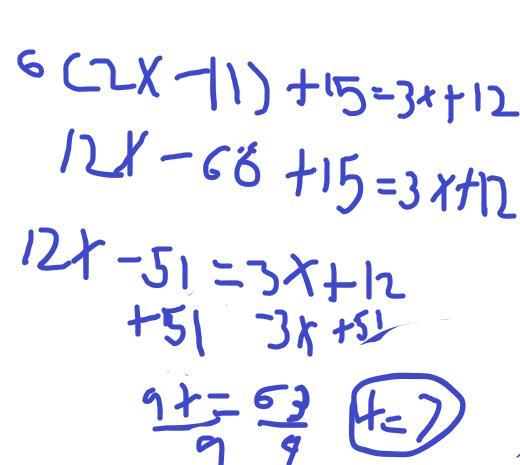 6(2x-11)+15=3x+12
12x-66+15=3x+12
12x-51=3x+12
+51 -3x +51
9x= 63 x=7
9 9